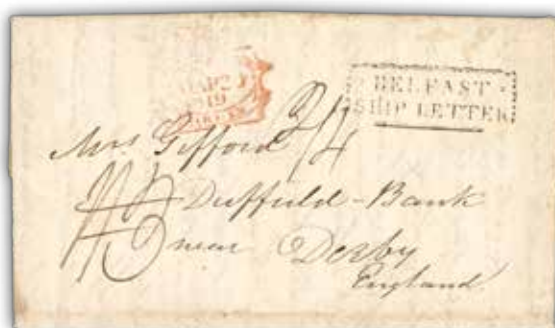 BELFAST
SHIP LETTER
19
Mrs Gifford
Duffield-Bank
near Derby
England